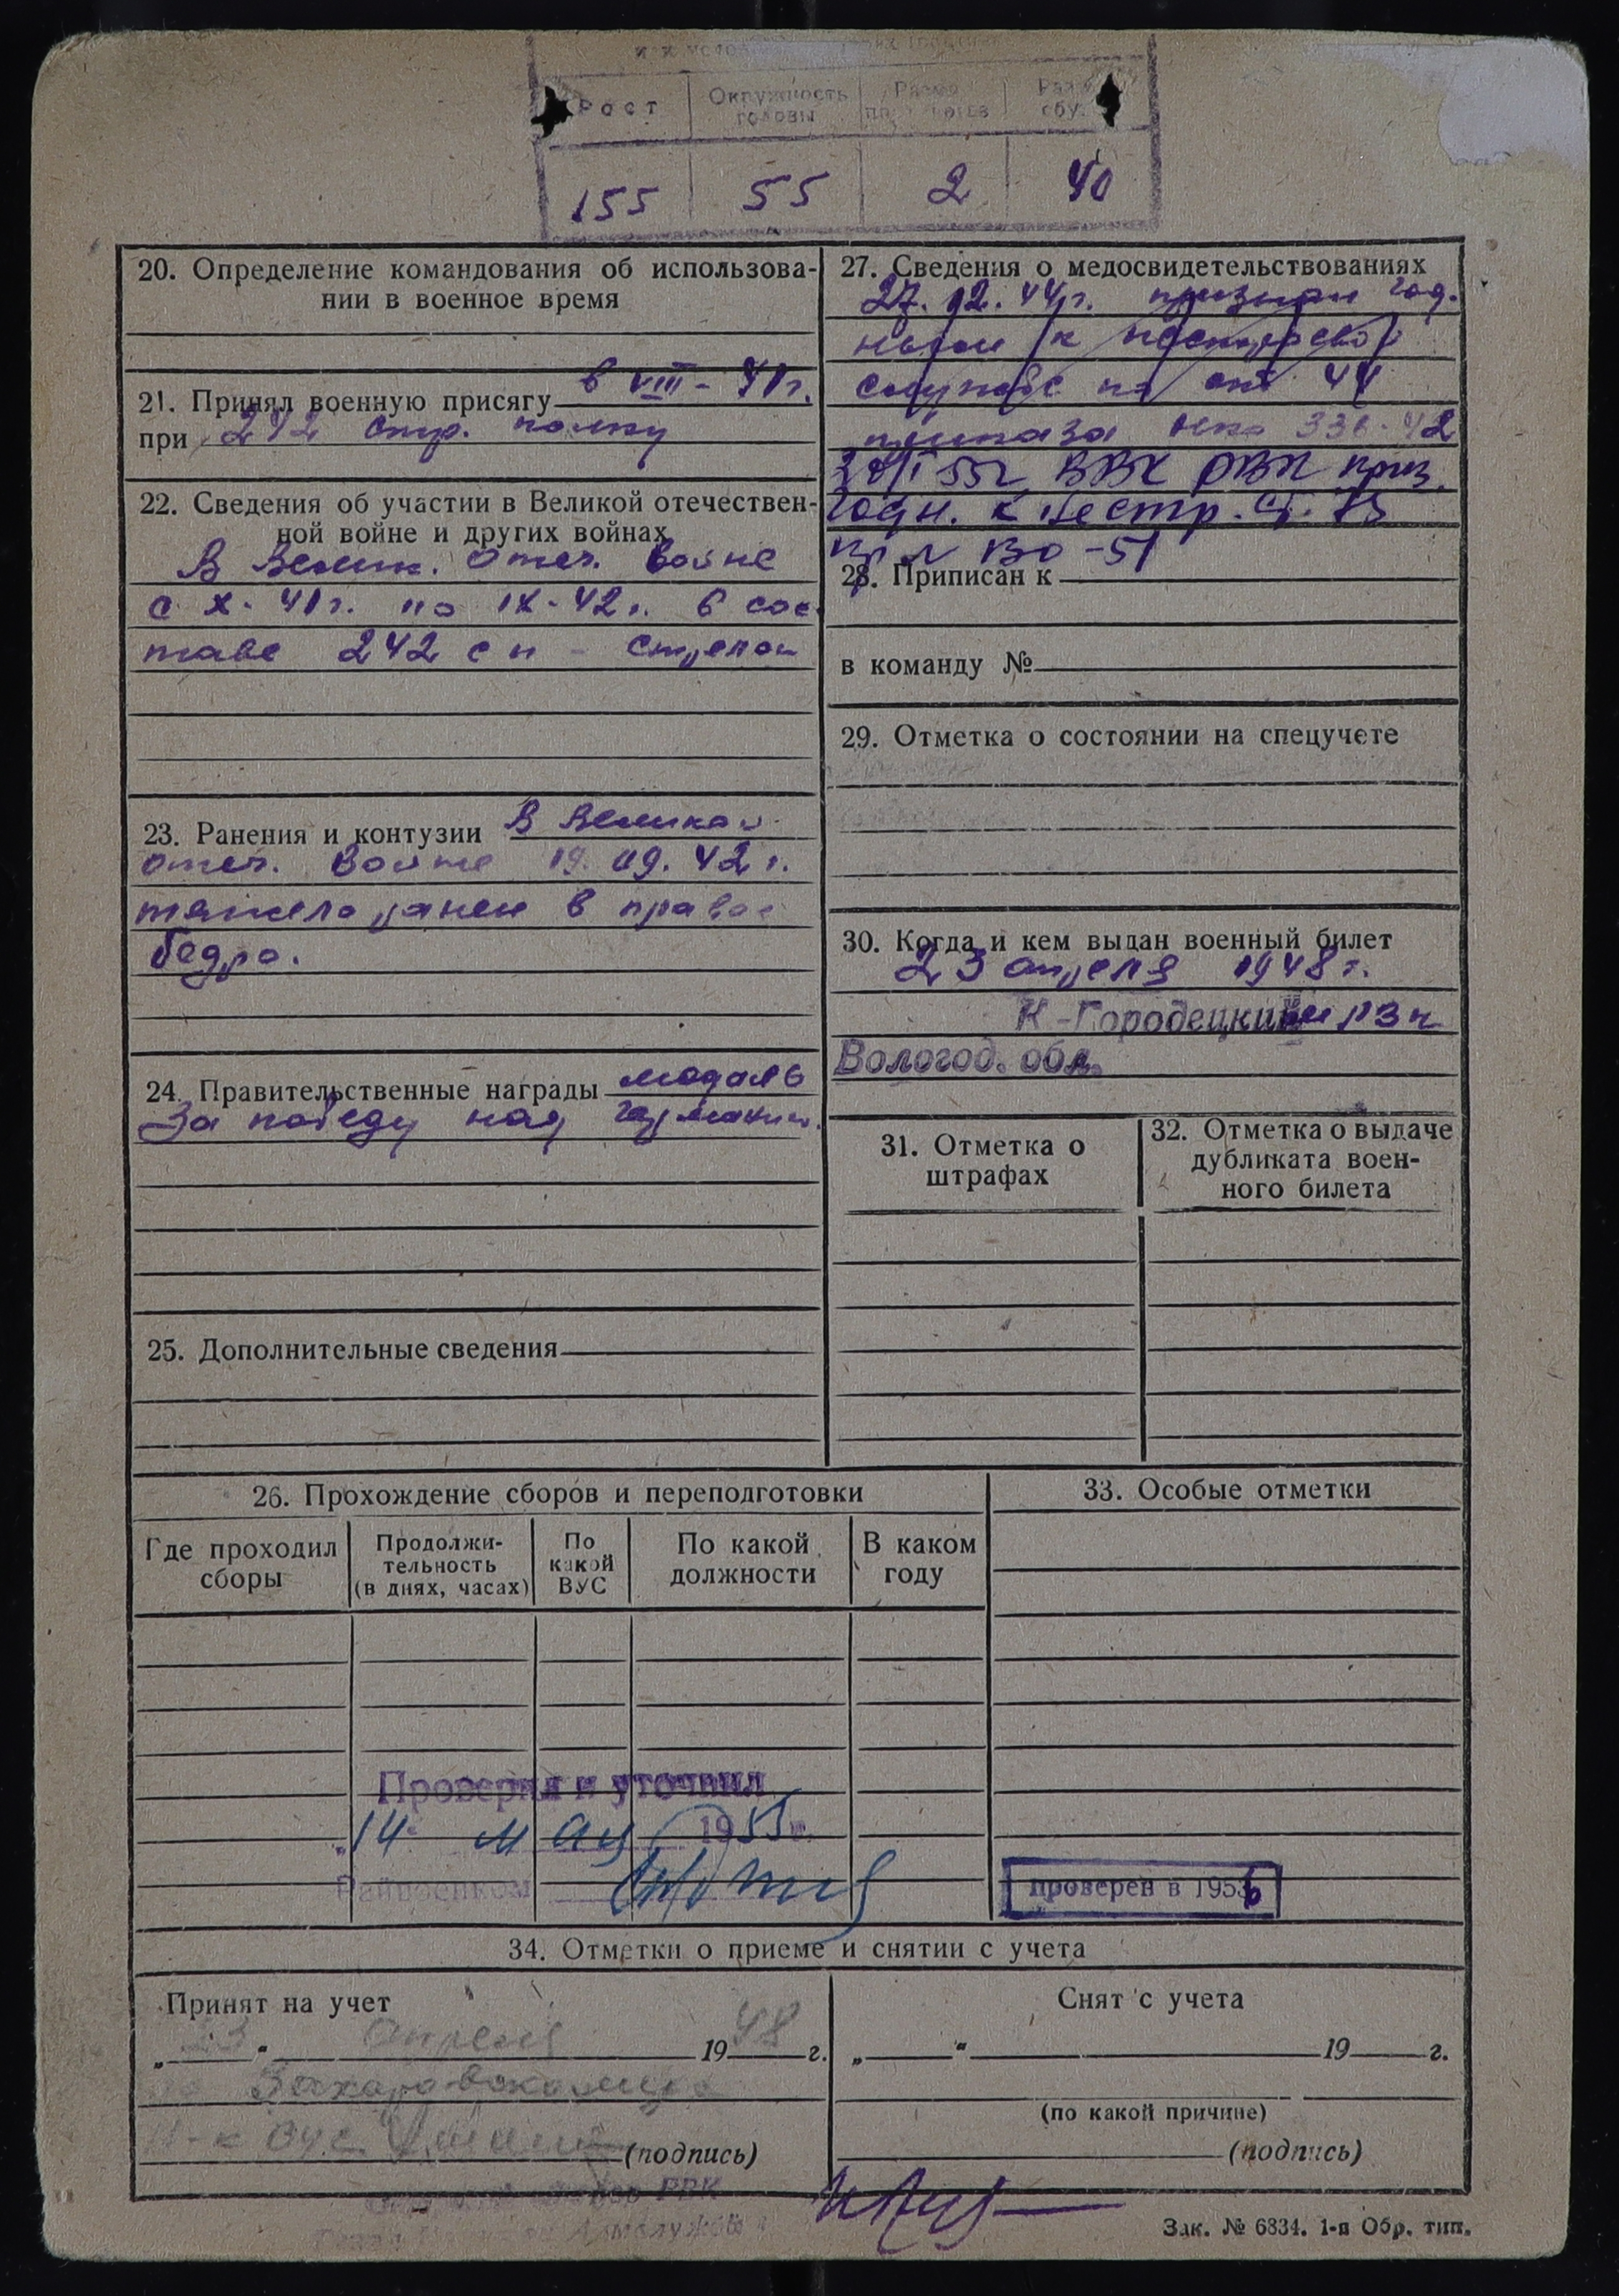 Рост
Окружность
головы
155
55
2
40
20. Определение командования об использова-
нии в военное время
21. Принял военную присягу в VIII - 41г.
при 242 стр. полку
22. Сведения об участии в Великой отечествен-
ной войне и других войнах
В Велик. Отеч. войне
с X-41г. по IX-42г. в сос
таве 242 сп - стрелок
23. Ранения и контузии В Великой
отеч. войне 19.09.42г.
тяжело ранен в правое
бедро.
24. Правительственные награды медаль
За победу над Германии.
25. Дополнительные сведения
27. Сведения о медосвидетельствованиях
27.12.44г. признан год.
ным к нестроевой
службе по ст 44
приказа нко 336-42
ВВК РВК приз.
годн. к нестр. ст. 73
пр. ВО-51
28. Приписан к
в команду №
29. Отметка о состоянии на спецучете
30. Когда и кем выдан военный билет
23 апреля 1948г.
К-Городецким
Вологод. обл.
31. Отметка о
штрафах
32. Отметка о выдаче
дубликата воен-
ного билета
26. Прохождение сборов и переподготовки
Где проходил
сборы
Продолжи-
тельность
(в днях, часах)
По
какой
ВУС
По какой
должности
В каком
году
Проверил и уточнил
14 мая 1955г.
Райвоенком
33. Особые отметки
проверен в 1956
34. Отметки о приеме и снятии с учета
Принят на учет
„23“ апреля 1948 г.
(подпись)
Снят с учета
„ “ 19 г.
(по какой причине)
(подпись)
РВК
Зак. № 6834. 1-я Обр. тип.